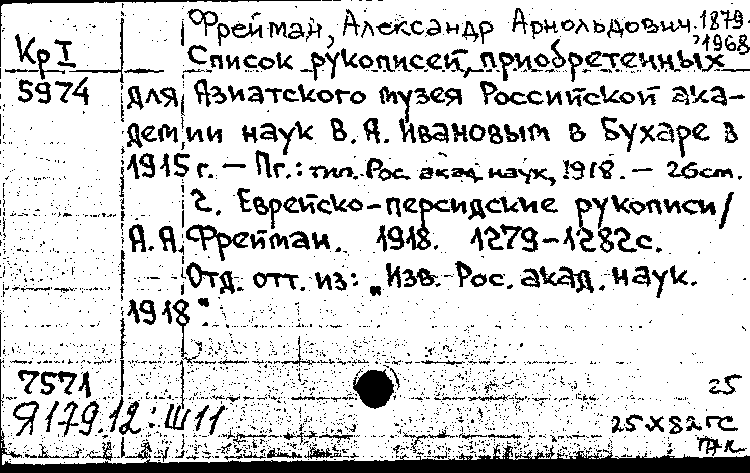 Фрейман, Александр Арнольдович. 1879-
1968
Кр I
Список рукописей, приобретенных
5974
для Азиатского музея Российской ака-
демии наук В. А. Ивановым в Бухаре в
1915 г. — Пг.: тип. Рос. акад. наук, 1918. — 26 cm.
2. Еврейско-персидские рукописи/
А. А. Фрейман. 1918. 1279-1282 с.
Отд. отт. из: „Изв. Рос. акад. наук.
1918".
7571
25
Я179.12: Ш11
25 X 82 ГС